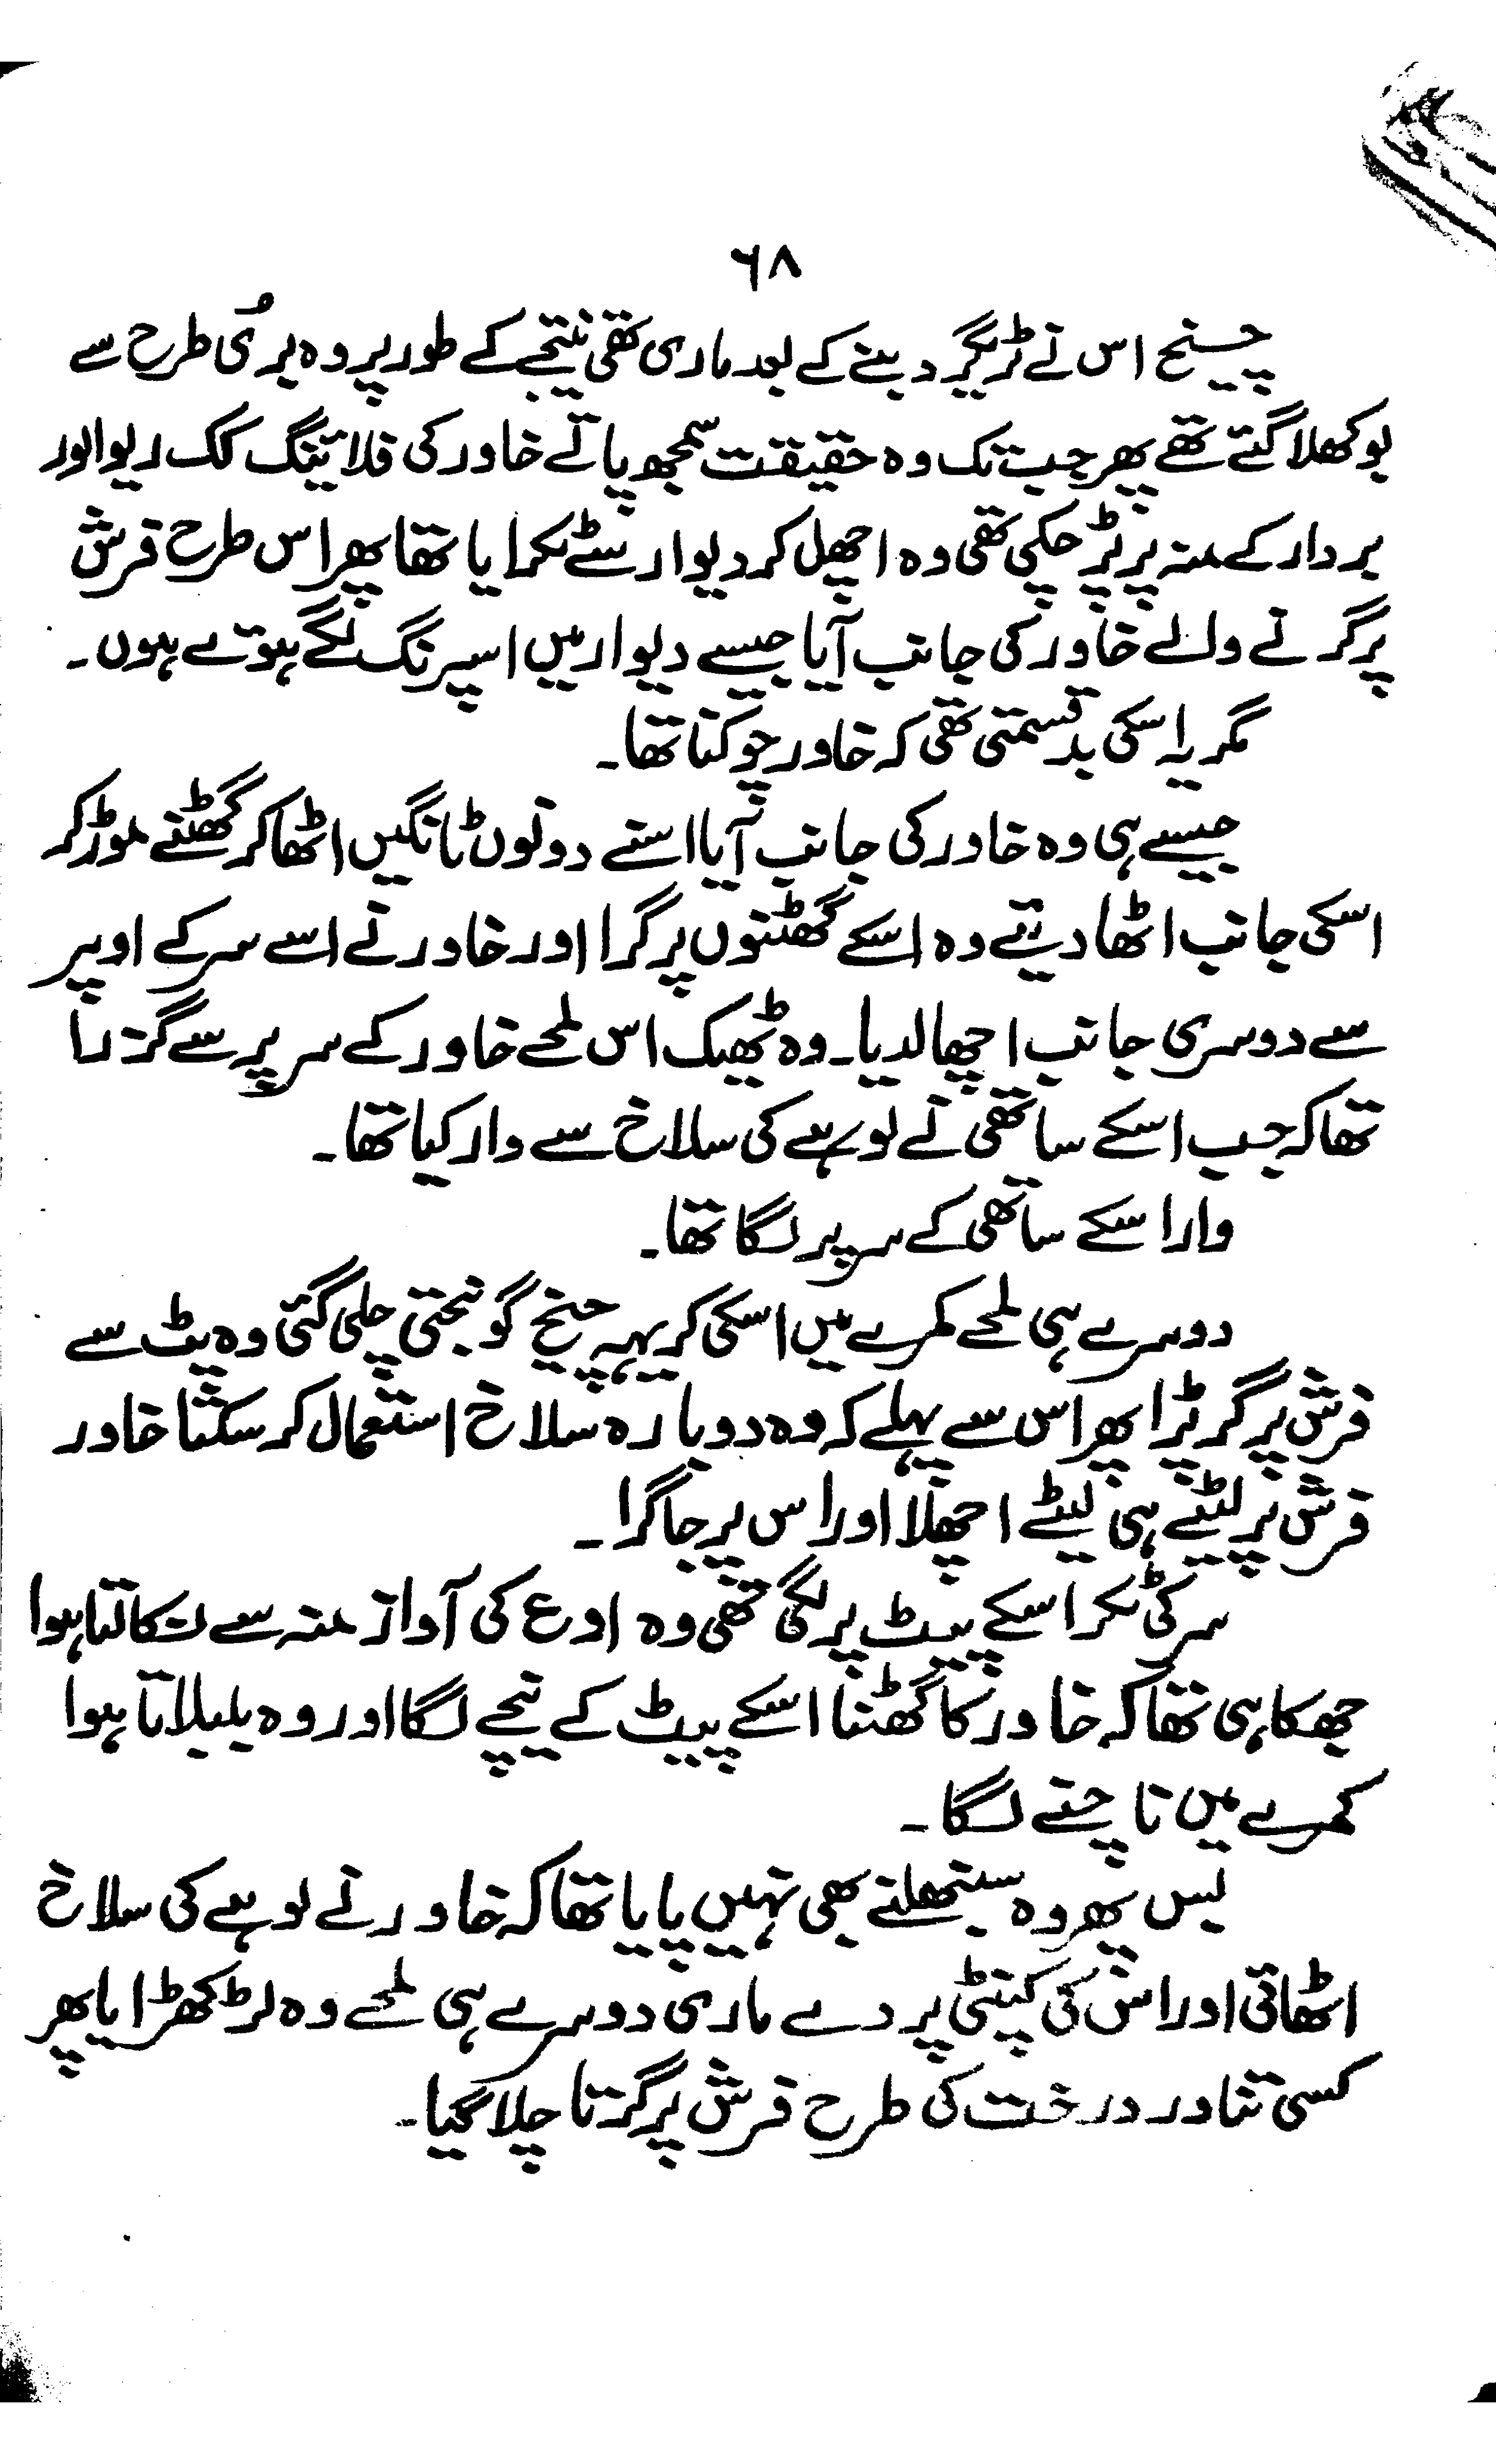 ۶۸
چیخ اس نے ٹریگر دبنے کے بعد ماری تھی نتیجے کے طور پر وہ بُری طرح سے
بوکھلا گئے تھے پھر جب تک وہ حقیقت سمجھ پاتے خاور کی فلائینگ کک ریوالور
بردار کے منہ پر پڑ چکی تھی وہ اچھل کر دیوار سے ٹکرایا تھا پھر اس طرح فرش
پر گرنے والے خاور کی جانب آیا جیسے دیوار میں اسپرنگ لگے ہوئے ہوں۔
مگر یہ اسکی بدقسمتی تھی کہ خاور چوکنا تھا۔
جیسے ہی وہ خاور کی جانب آیا اسنے دونوں ٹانگیں اٹھا کر گھٹنے موڑ کر
اسکی جانب اٹھا دیئے وہ اسکے گھٹنوں پر گرا اور خاور نے اسے سر کے اوپر
سے دوسری جانب اچھالدیا۔ وہ ٹھیک اس لمحے خاور کے سر پر سے گزرا
تھا کہ جب اسکے ساتھی نے لوہے کی سلاخ سے وار کیا تھا۔
وار اسکے ساتھی کے سر پر لگا تھا۔
دوسرے ہی لمحے کمرے میں اسکی کریہہ چیخ گونجتی چلی گئی وہ پٹ سے
فرش پر گر پڑا پھر اس سے پہلے کہ وہ دوبارہ سلاخ استعمال کر سکتا خاور
فرش پر لیٹے ہی لیٹے اچھلا اور اس پر جا گرا۔
سر کی ٹکر اسکے پیٹ پر لگی تھی وہ اوع کی آواز منہ سے نکالتا ہوا
جھکا ہی تھا کہ خاور کا گھٹنا اسکے پیٹ کے نیچے لگا اور وہ بلبلاتا ہوا
کمرے میں ناچنے لگا۔
بس پھر وہ سنبھلنے بھی نہیں پایا تھا کہ خاور نے لوہے کی سلاخ
اٹھائی اور اس کی کنپٹی پر دے ماری دوسرے ہی لمحے وہ لڑکھڑایا پھر
کسی تناور درخت کی طرح فرش پر گرتا چلا گیا۔